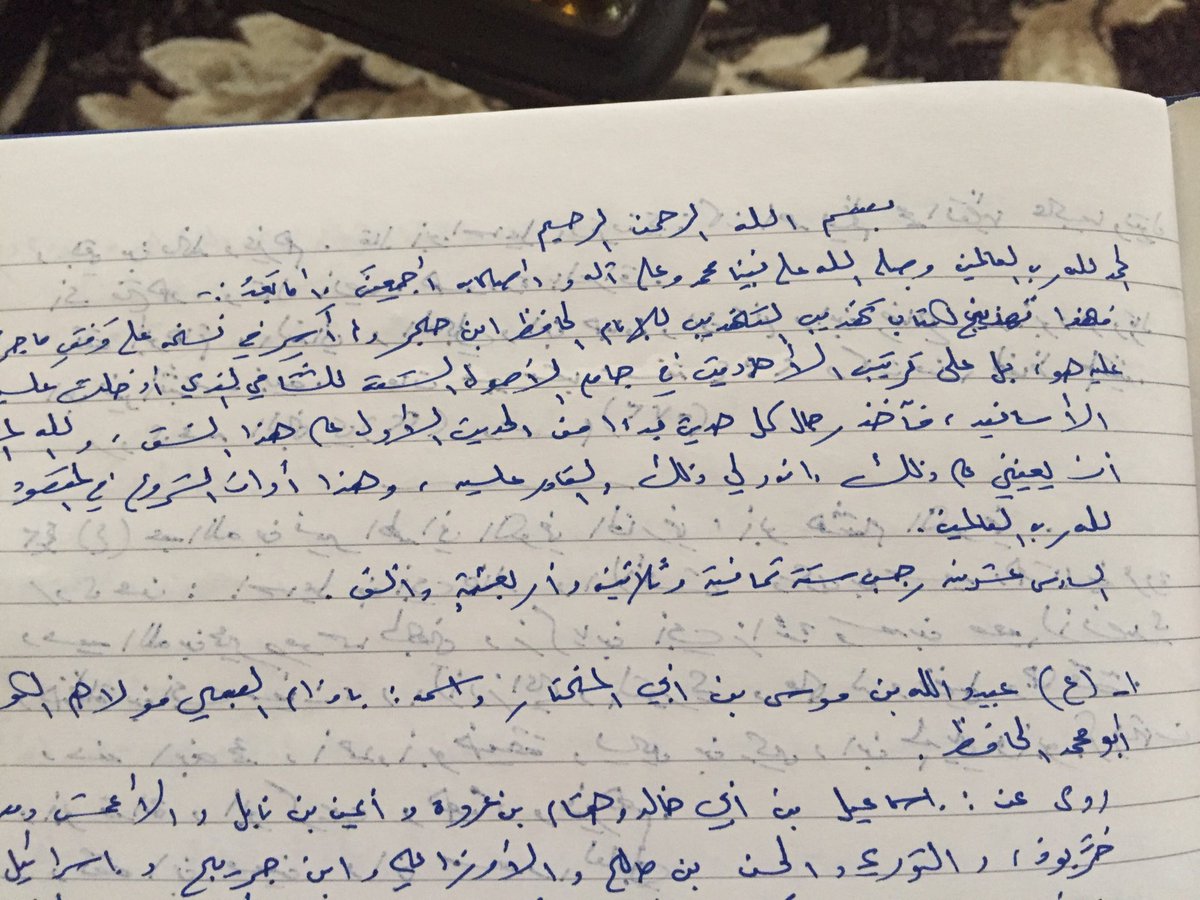 بسم الله الرحمن الرحيم
الحمد لله رب العالمين وصلى الله على نبينا محمد وعلى آله وأصحابه أجمعين . أما بَعْدُ :-
فهذا تهذيبٌ لكتاب تهذيب التهذيب للإمام الحافظ ابن حجر ، أسير في نسخه على وَفْقِ ما جرى
عليه هو ، بل على ترتيب الأحاديث في جامع الأصول الستة للشامي الذي أدخلت عليه
الأسانيد ، فآخذ رجال كل حديث بدءًا من الحديث الأول على هذا النسق ، والله
أن يعينني على ذلك إنه ولي ذلك والقادر عليه ، وهذا أوان الشروع في المقصود
لله رب العالمين .
السادس عشر من رجب سنة ثمانية وثلاثين وأربعمئة وألف .
١- (ع) عبيد الله بن موسى بن أبي المختار واسمه : باذام العبسي مولاهم الكو
أبو محمد الحافظ .
روى عن : إسماعيل بن أبي خالد وهشام بن عروة و أيمن بن نابل و الأعمش و
خَرَّبوذ ، و الثوري و الحسن بن صالح و الأوزاعي و ابن جريج و إسرائيل